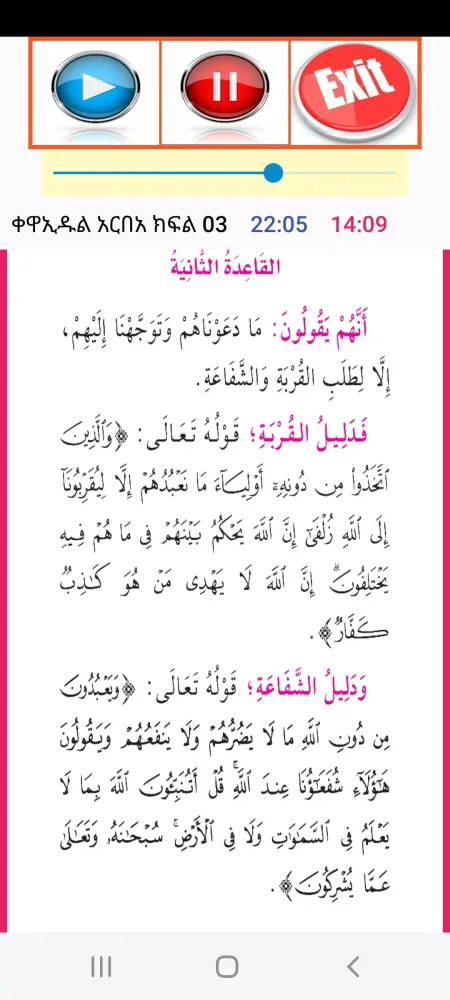 Exit
ቀዋኢዱል አርበአ ክፍል 03 22:05 14:09
القَاعِدَةُ الثَّانِيَةُ
أَنَّهُمْ يَقُولُونَ: مَا دَعَوْنَاهُمْ وَتَوَجَّهْنَا إِلَيْهِمْ،
إِلَّا لِطَلَبِ القُرْبَةِ وَالشَّفَاعَةِ.
فَدَلِيلُ القُرْبَةِ؛ قَوْلُهُ تَعَالَى: ﴿وَٱلَّذِينَ
ٱتَّخَذُوا۟ مِن دُونِهِۦٓ أَوْلِيَآءَ مَا نَعْبُدُهُمْ إِلَّا لِيُقَرِّبُونَآ
إِلَى ٱللَّهِ زُلْفَىٰٓ إِنَّ ٱللَّهَ يَحْكُمُ بَيْنَهُمْ فِى مَا هُمْ فِيهِ
يَخْتَلِفُونَ ۗ إِنَّ ٱللَّهَ لَا يَهْدِى مَنْ هُوَ كَـٰذِبٌ
كَفَّارٌ﴾.
وَدَلِيلُ الشَّفَاعَةِ؛ قَوْلُهُ تَعَالَى: ﴿وَيَعْبُدُونَ
مِن دُونِ ٱللَّهِ مَا لَا يَضُرُّهُمْ وَلَا يَنفَعُهُمْ وَيَقُولُونَ
هَـٰٓؤُلَآءِ شُفَعَـٰٓؤُنَا عِندَ ٱللَّهِ ۚ قُلْ أَتُنَبِّـُٔونَ ٱللَّهَ بِمَا لَا
يَعْلَمُ فِى ٱلسَّمَـٰوَٰتِ وَلَا فِى ٱلْأَرْضِ ۚ سُبْحَـٰنَهُۥ وَتَعَـٰلَىٰ
عَمَّا يُشْرِكُونَ﴾.